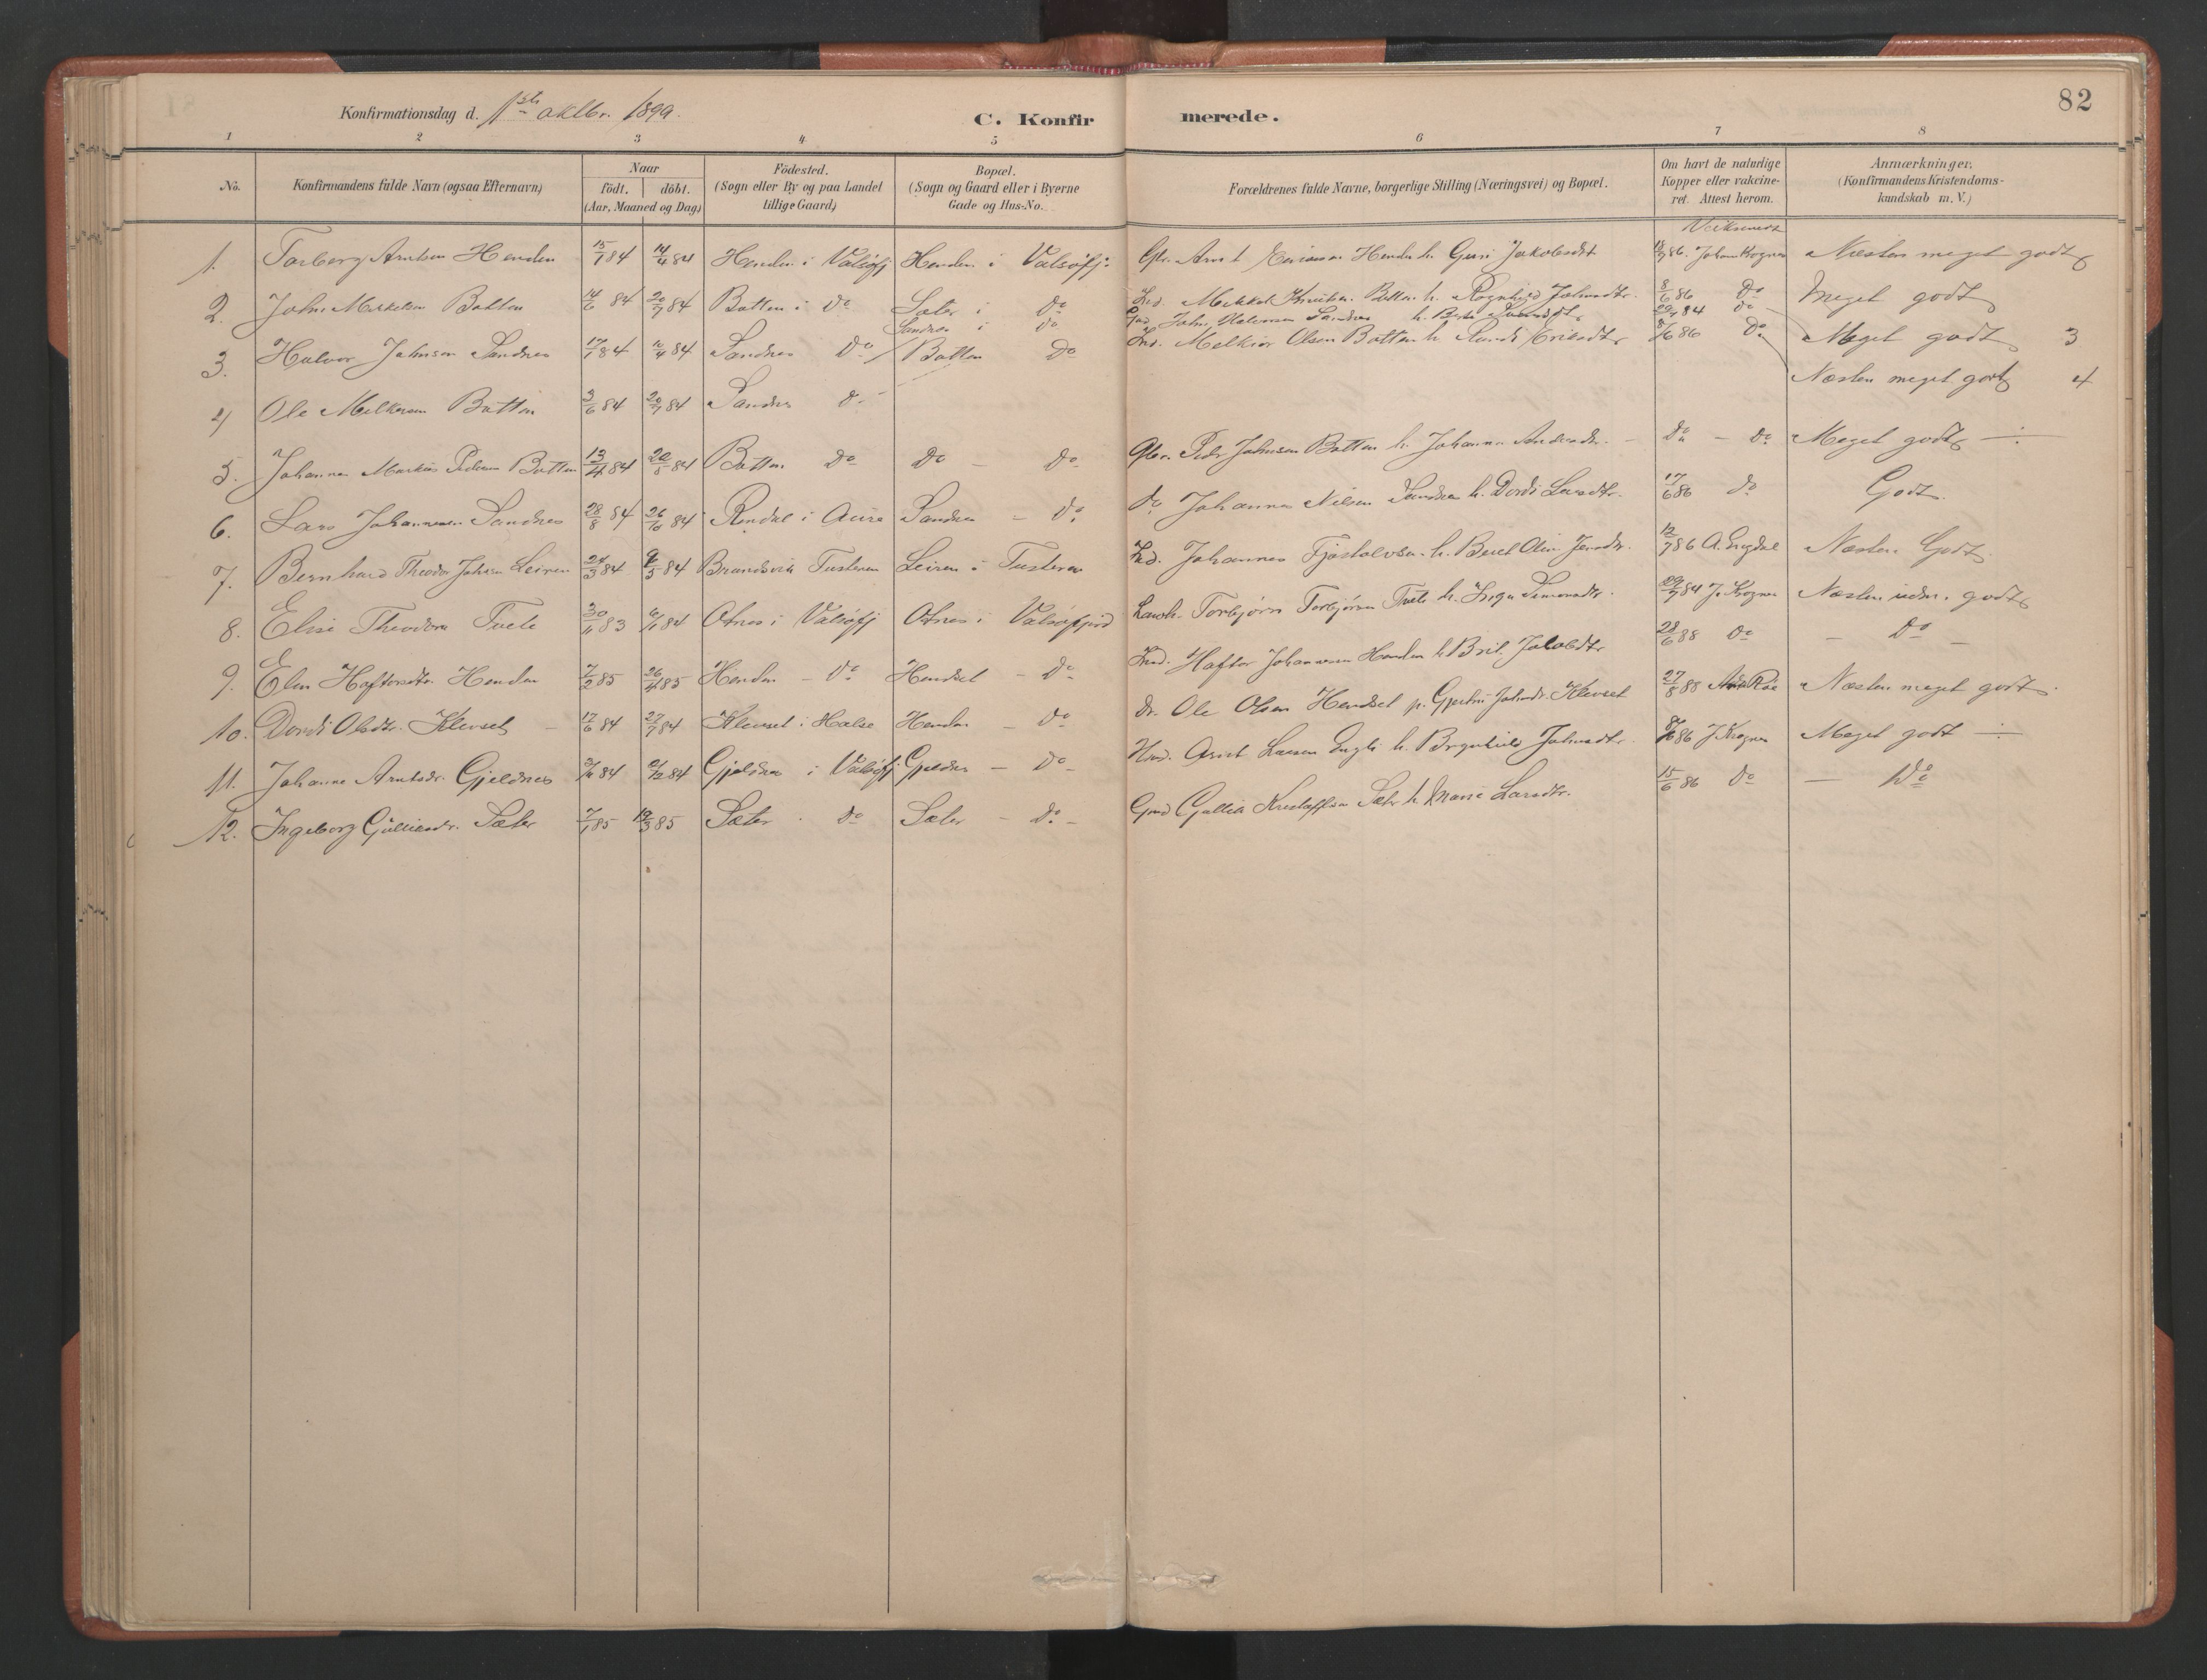 82
Konfirmationsdag d. 1ste oktbr. 1899.
C. Konfir merede.
1 2 3 4 5 6 7 8
No. Konfirmandens fulde Navn (ogsaa Efternavn) Naar födt, döbt. (Aar, Maaned og Dag) Födested. (Sogn eller By og paa Landet tillige Gaard) Bopæl. (Sogn og Gaard eller i Byerne Gade og Hus-No. Forældrenes fulde Navne, borgerlige Stilling (Næringsvei) og Bopæl. Om havt de naturlige Kopper eller vakcineret. Attest herom. Anmærkninger. (Konfirmandens Kristendomskundskab m. V.)
1. Torberg Arntsen Henden 15/1 84 14/4 84 Henden i Valsøfj Henden i Valsøfj: Gbr. Arnt Henden h. Guri Jakobsdt 86. Johan Krognes Næsten meget godt
2. John Mekkelsen Botten 14/6 84 20/7 84 Botten i Do Sæter i Do Ind. Mekkel Botten h. Ragnhild Johnsdtr. 8/6 86 Do Meget godt
Sandnes i Do John Halvorsen Sandnes h. 84 do
3. Halvor Johnsen Sandnes 17/1 84 84 Sandnes Do / Botten Do Ind. Melkior Olsen Botten h. Randi Eriksdtr 8/6 86 Do Meget godt 3
Næsten meget godt 4
4 Ole Melkersen Botten 3/6 84 20/7 84 Sandnes Do
5. Johannes Markus Pedersen Botten 13/4 84 20/5 84 Botten Do Do - Do Gbr. Peder Johnsen Botten h. Johanna Andersdr. - Do - Do Meget godt -:
6. Lars Johannessen Sandnes 28/8 84 26/10 84 Rendal i Aure Sandnes - Do Do Johannes Nilsen Sandnes h. Dordi Larsdtr. 17/6 86 Do Godt
7. Bernhard Theodor Johsen Leiren 24/3 84 84 Brandsvik Tusteren Leiren i Tusteren Ind. Johannes Fjøstolvsen h. Beret Olin Jensdr. 12/7 86 A. Engdal Næsten Godt.
8. Elise Theodora Tvete 30/11 83 84 Otnes i Valsøfj Otnes i Valsøfjord Torbjørn Torbjørnsen Tvete h. Inga Simonsdtr. 29/7 84 J. Krognes Næsten udm. godt
9. Elen Haftorsdtr. Henden 7/2 85 26/4 85 Henden - Do Hendset - Do Ind. Haftor Johannesen Henden h Brit Jakobdtr 28/6 88 Do - Do -
10. Dordi Olsdtr. Klevset 17/6 84 27/7 84 Klevset i Halse Henden - Do Do. Ole Olsen Hendset p. Gjertru Johnsdr. Klevset 27/8 88 Næsten meget godt.
11. Johanne Arntsdr. Gjeldnes 84 21/12 84 Gjeldnes i Valsøfj Gjeldnes - Do Hmd. Larsen h. Brynhild Johnsdtr. 86 J. Krognes Meget godt -:
12. Ingeborg Gulliksdr. Sæter 7/1 85 19/3 85 Sæter - Do Sæter - Do - Gmd Gullik Sæter h. Marie Larsdtr. 15/6 86 Do - Do